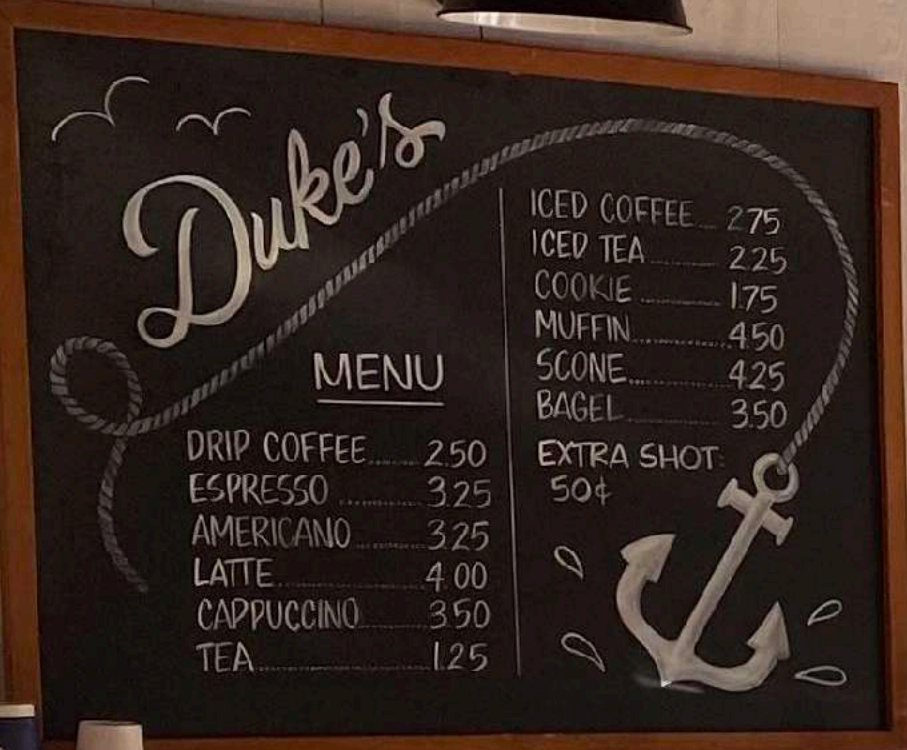 Duke's
MENU
DRIP COFFEE.....2.50
ESPRESSO.....3.25
AMERICANO.....3.25
LATTE.....4.00
CAPPUCCINO.....3.50
TEA.....1.25
ICED COFFEE.....2.75
ICED TEA.....2.25
COOKIE.....1.75
MUFFIN.....4.50
SCONE.....4.25
BAGEL.....3.50
EXTRA SHOT:
50¢